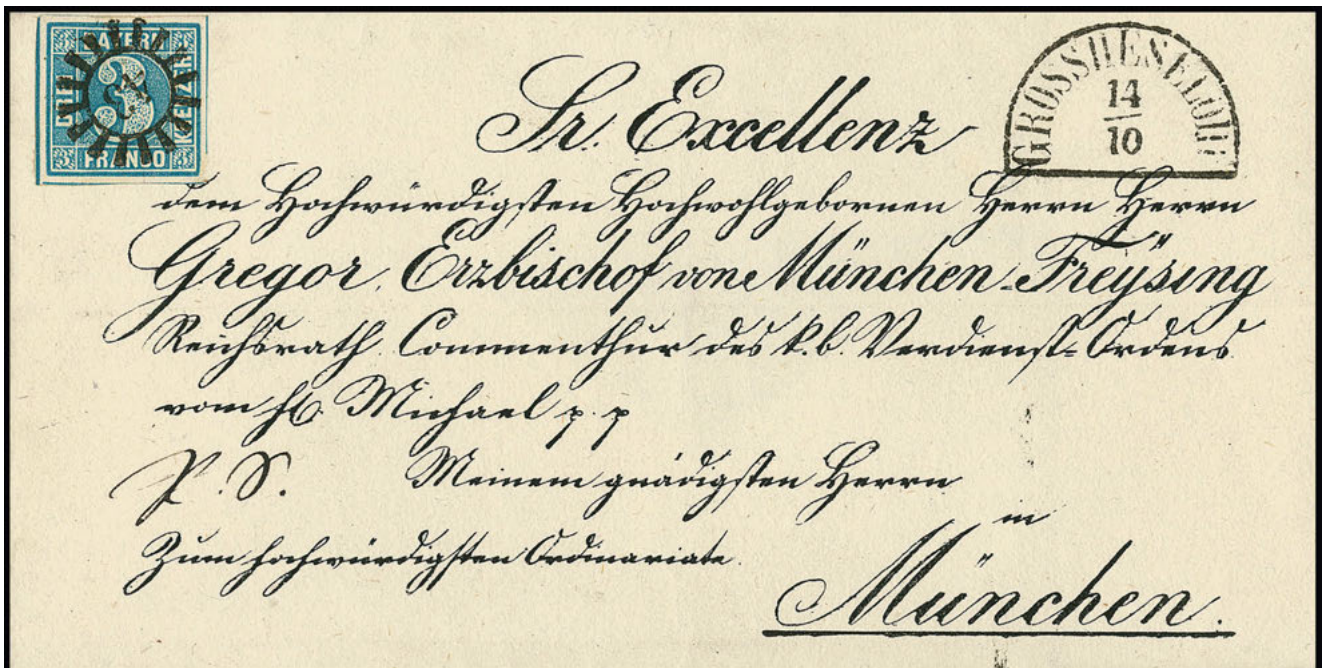 BAYERN
3
FRANCO
GROSSHESELOHE
14
10
Sr. Excellenz
dem Hochwürdigsten Hochwohlgebornen Herrn Herrn
Gregor, Erzbischof von München-Freÿsing
Reichsrath Commenthur des k. b. Verdienst-Ordens
vom hl. Michael p. p
P. S. Meinem gnädigsten Herrn
Zum hochwürdigsten Ordinariate.
in
München.